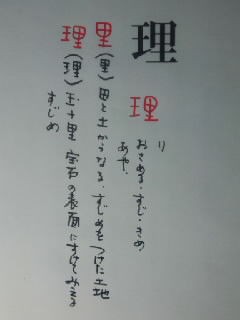 理
理
り
おさめる・すじ・きめ
あや・
里(里)田と土からなる。すじめをつけた土地
理(理)王+里 宝石の表面にすけてみえる
すじめ